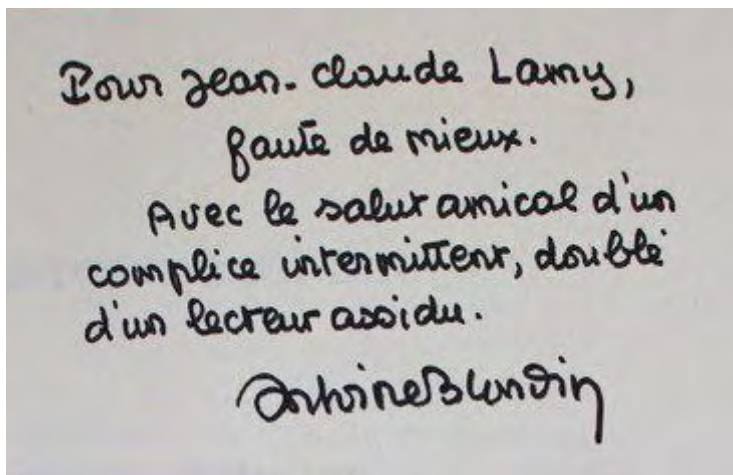 Pour Jean-Claude Lamy,
faute de mieux.
Avec le salut amical d'un
complice intermittent, doublé
d'un lecteur assidu.
Antoine Blondin